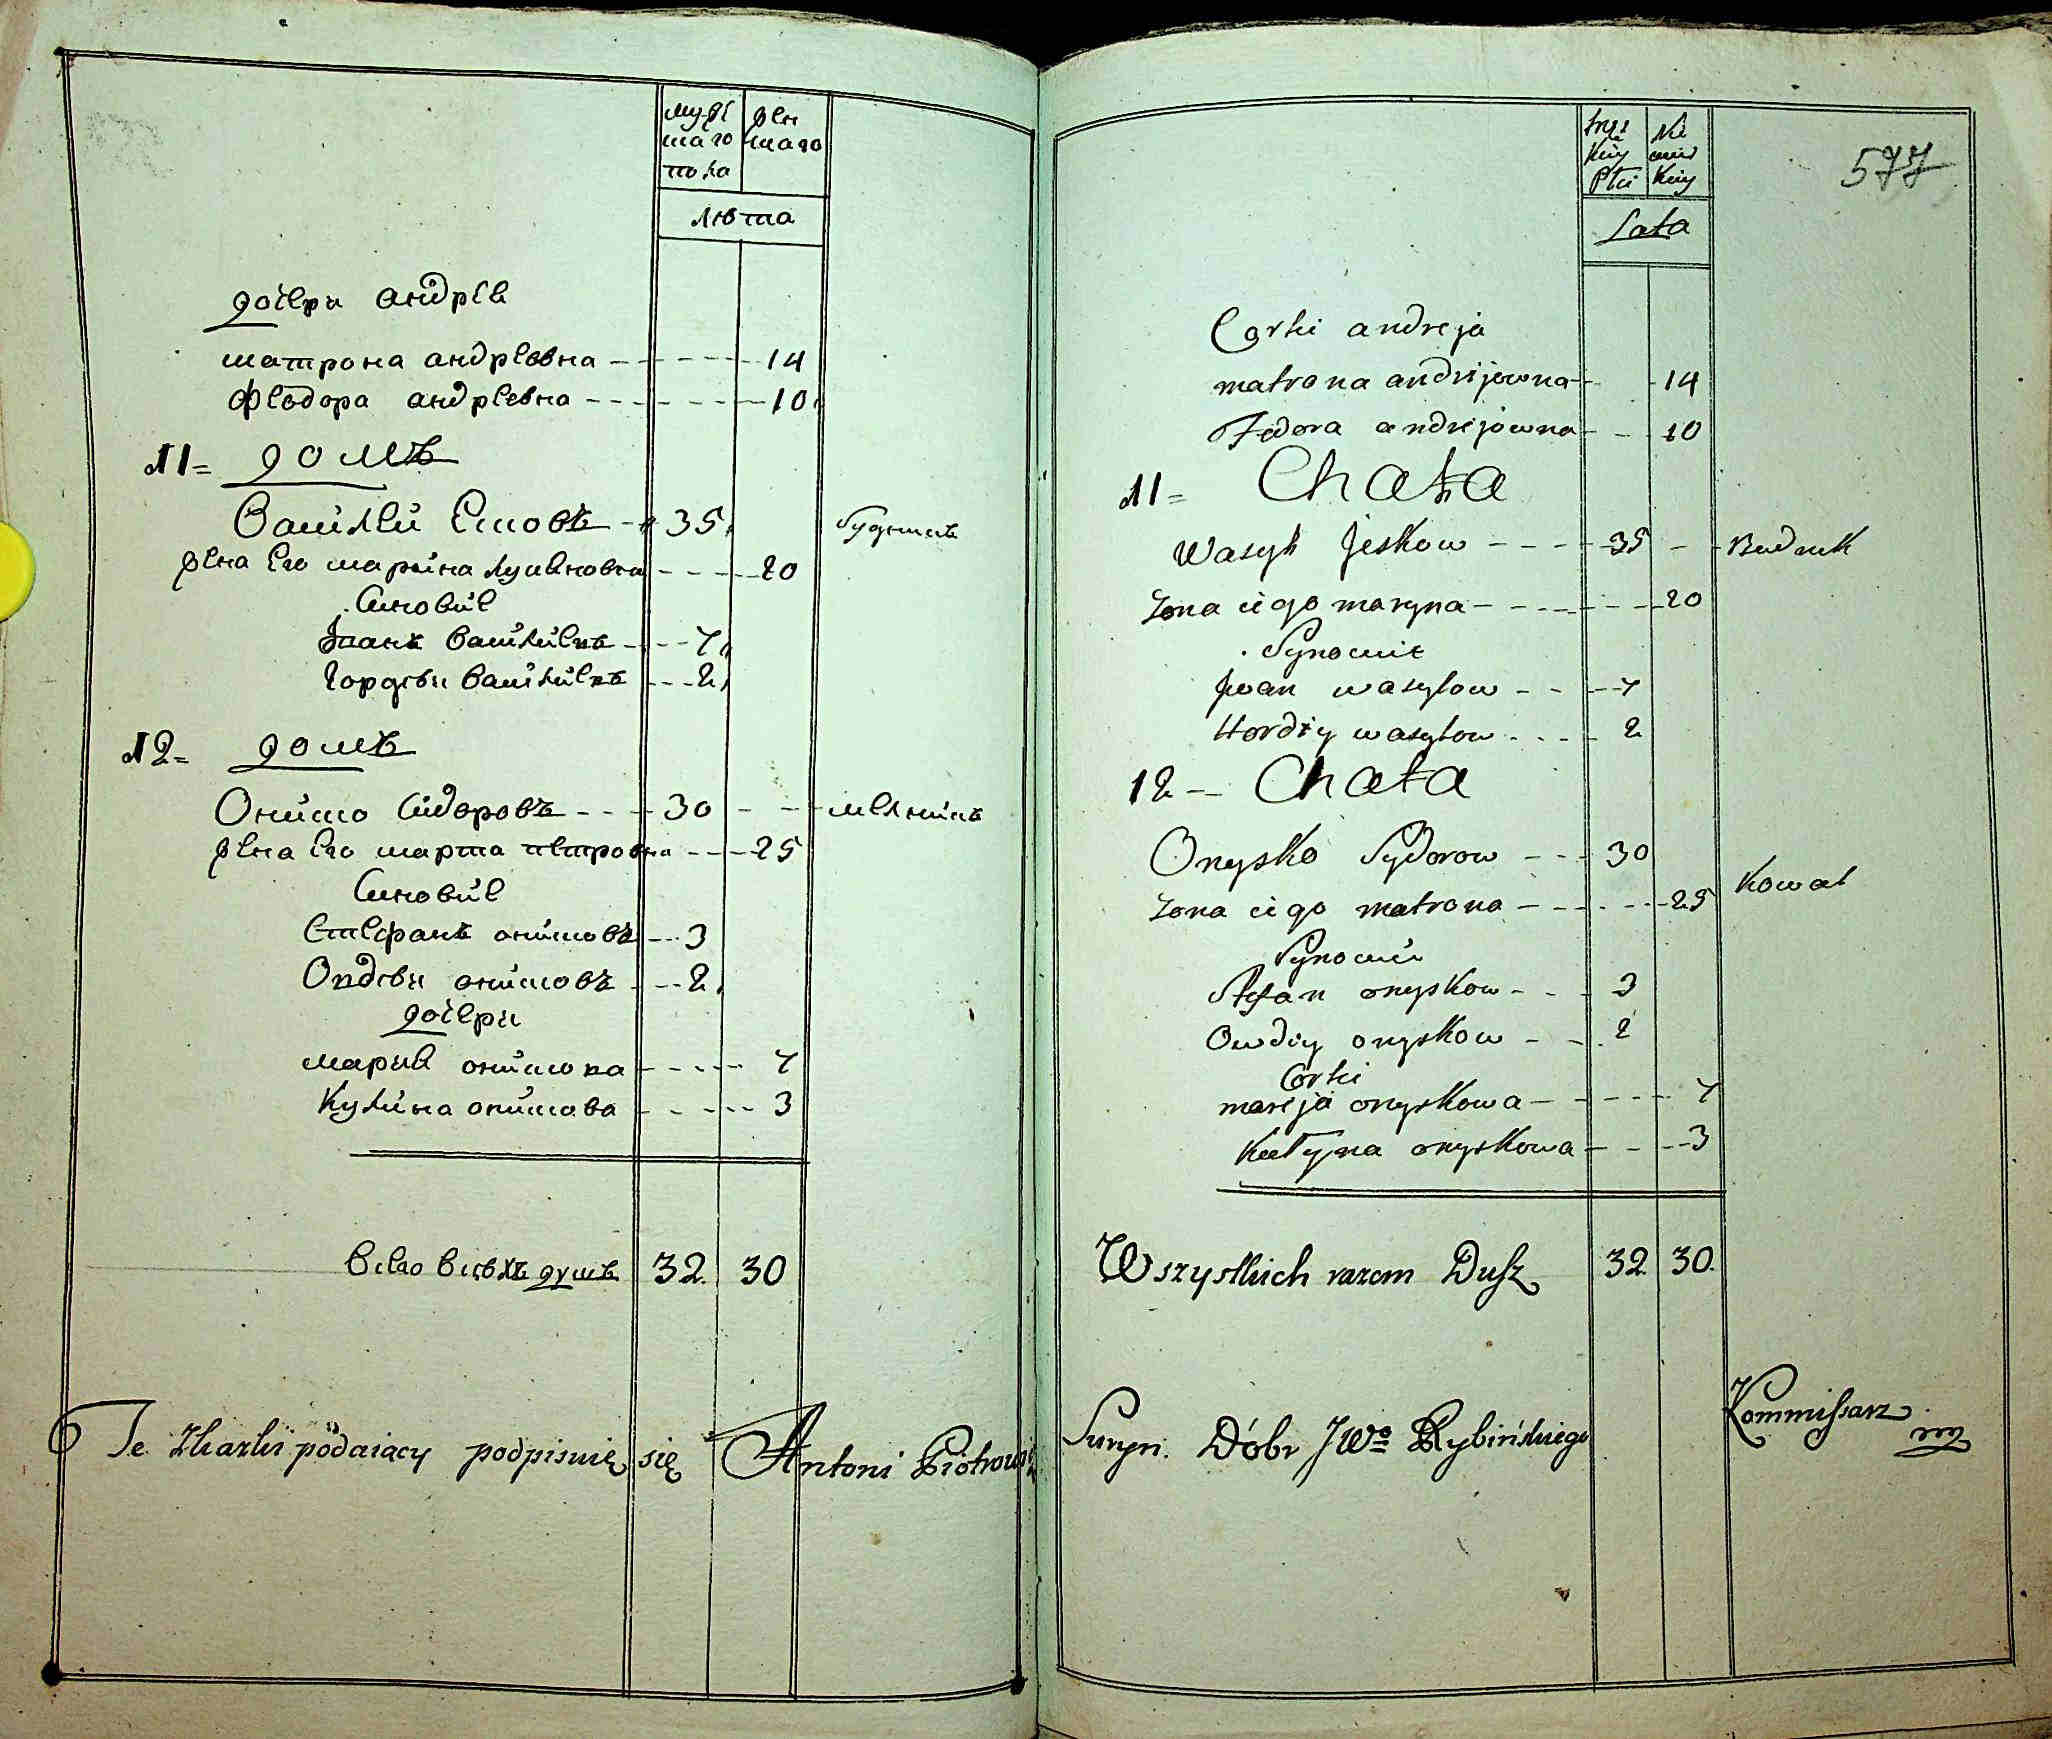 мужескаго пола
женскаго
люта
дочери андрея
матрона андреевна 14
феодора андреевна 10
11 = домъ
Василей Есковъ 35 будникъ
жена Его марина 20
Синовие
Іванъ василиевъ 7
Гордѣи василиевъ 2
12 = домъ
Ониско Сидоровъ 30 мелникъ
жена Его марта петровна 25
Синовие
Стефанъ онисковъ 3
Овдѣи онисковъ 2
дочери
мария онискова 7
Кулина онискова 3
всего всѣхъ душъ 32 30
Te skazki podaiący podpisuię się Antoni Piotrowski
577
męzkiy Płci
Niewieskiy
Lata
Corki andreja
matrona andrijowna 14
Fedora andrijowna 10
11 = Chata
Wasyl Jeskow 35 Budnik
Zona iego maryna 20
Synowie
Jwan wasylow 7
Hordiy wasylow 2
12 - Chata
Onysko Sydorow 30
Kowal
Zona iego matrona 25
Synowie
Stefan onyskow 3
Owdiy onyskow 2
Corki
marija onyskowa 7
Kulyna onyskowa 3
Wszystkich razem Dusz 32 30
Dóbr JWo Rybińskiego Kommissarz mp